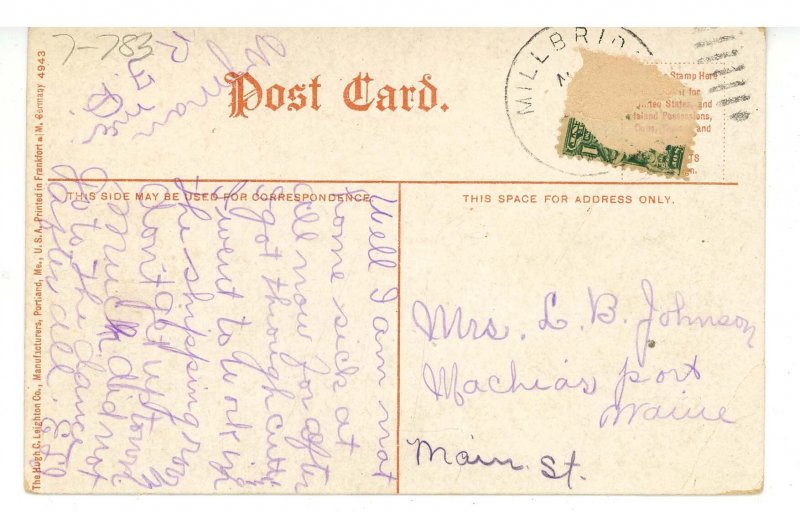 7-783
Post Card.
MILLBRID
Stamp Here
for
United States, and
Island Possessions,
Cuba, and
THIS SIDE MAY BE USED FOR CORRESPONDENCE
THIS SPACE FOR ADDRESS ONLY.
The Hugh C. Leighton Co., Manufacturers, Portland, Me., U. S. A. Printed in Frankfort a/M. Germany 4943
Well I am not
home sick at
all now for after
I got through cutti
I went to work in
the shipping room
don't get up town
much. did not
go to the dance
after all.
Wyman
Mrs. L. B. Johnson
Machias port
Maine
Main St.